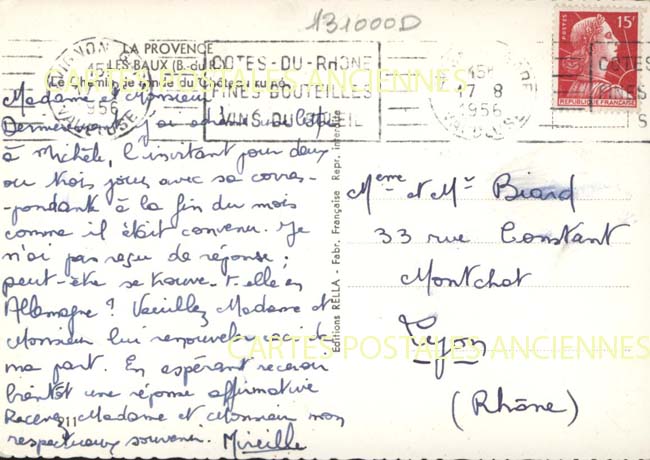 131000D
LA PROVENCE
LES BAUX (B.-du-R.)
Le Chemin de ronde du Château au
AVIGNON
VAUCLUSE
1956
COTES-DU-RHÔNE
FINES BOUTEILLES
VINS DU SOLEIL
15H
17-8
1956
VAUCLUSE
POSTES
15F
REPUBLIQUE FRANÇAISE
CARTES POSTALES ANCIENNES
Madame et Monsieur
Dernièrement j'ai une lettre
à Michèle, l'invitant pour deux
ou trois jours avec sa corres-
-pondante à la fin du mois
comme il était convenu. Je
n'ai pas reçu de réponse ;
peut-être se trouve-t-elle en
Allemagne ? Veuillez Madame et
Monsieur lui renouveler ceci de
ma part. En espérant recevoir
bientôt une réponse affirmative
Recevez Madame et Monsieur mon
respectueux souvenir. Mireille
211
Editions RELLA - Fabr. Française - Repr. interdite
Meme et Mr Biard
33 rue Constant
Montchat
Lyon
(Rhône)
CARTES POSTALES ANCIENNES